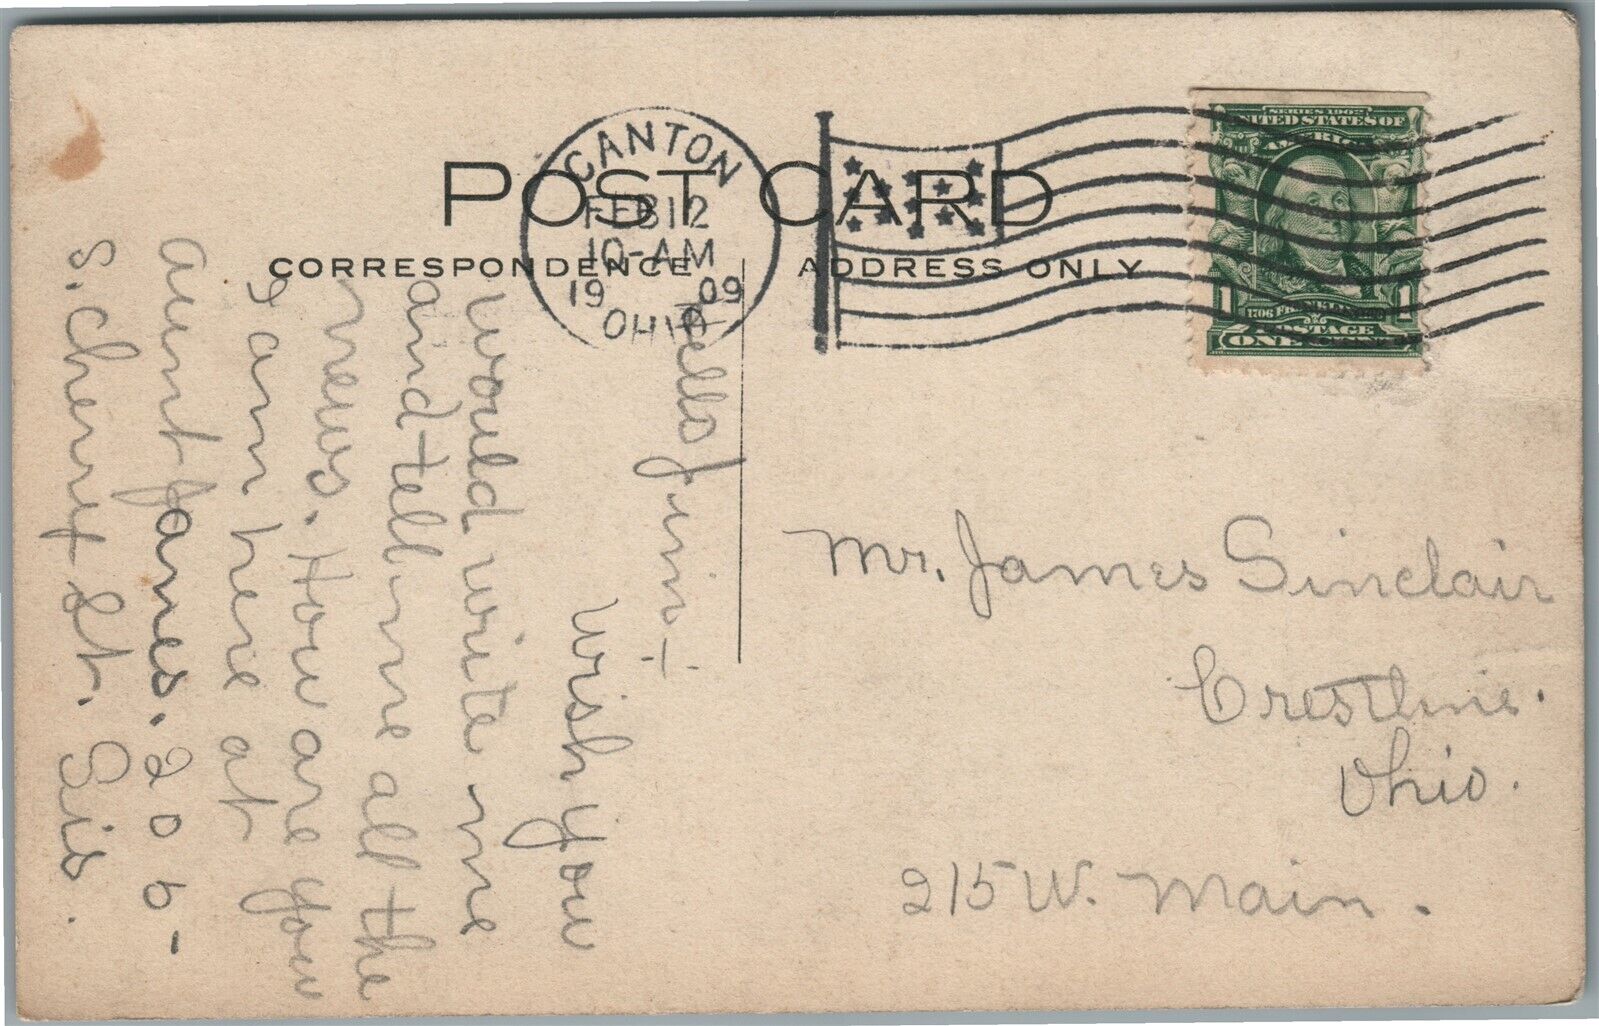 POST CARD
CORRESPONDENCE
ADDRESS ONLY
CANTON
FEB 12
10-AM
1909
OHIO
SERIES 1902
UNITED STATES OF
AMERICA
1 1
1706 FRANKLIN 1790
POSTAGE
ONE CENT
Hello Jim:-
Wish you
would write me
and tell me all the
news. How are you
I am here at
Aunt Janes. 206-
S. Cherry St. Sis.
Mr. James Sinclair
Crestline.
Ohio.
215 W. Main.